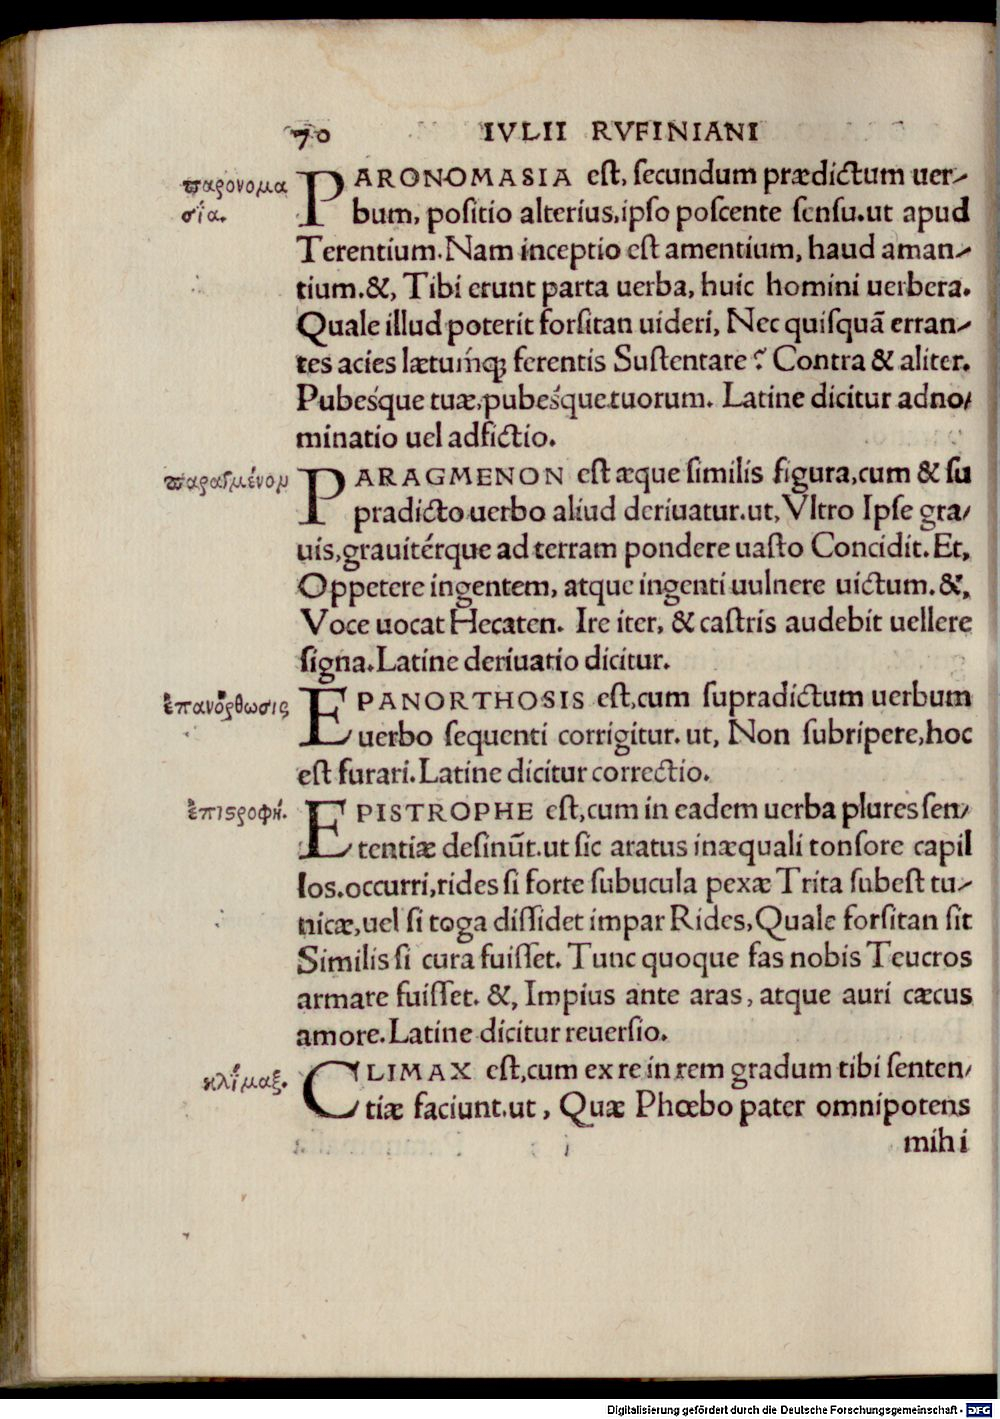 70 IVLII RVFINIANI
παρονομα
σία.
PARONOMASIA est, secundum prædictum uer-
bum, positio alterius, ipso poscente sensu. ut apud
Terentium. Nam inceptio est amentium, haud aman-
tium. &, Tibi erunt parta uerba, huic homini uerbera.
Quale illud poterit forsitan uideri, Nec quisquã erran-
tes acies lætumq; ferentis Sustentare? Contra & aliter.
Pubesque tuæ, pubesque tuorum. Latine dicitur adno/
minatio uel adfictio.
παραγμένομ
PARAGMENON est æque similis figura, cum & su
pradicto uerbo aliud deriuatur. ut, Vltro Ipse gra/
uis, grauitérque ad terram pondere uasto Concidit. Et,
Oppetere ingentem, atque ingenti uulnere uictum. &,
Voce uocat Hecaten. Ire iter, & castris audebit uellere
signa. Latine deriuatio dicitur.
ἐπανόρθωσις
EPANORTHOSIS est, cum supradictum uerbum
uerbo sequenti corrigitur. ut, Non subripere, hoc
est furari. Latine dicitur correctio.
ἐπιϛροφή.
EPISTROPHE est, cum in eadem uerba plures sen/
tentiæ desinũt. ut sic aratus inæquali tonsore capil
los. occurri, rides si forte subucula pexæ Trita subest tu-
nicæ, uel si toga dissidet impar Rides, Quale forsitan sit
Similis si cura fuisset. Tunc quoque fas nobis Teucros
armare fuisset. &, Impius ante aras, atque auri cæcus
amore. Latine dicitur reuersio.
κλίμαξ.
CLIMAX est, cum ex re in rem gradum tibi senten/
tiæ faciunt. ut, Quæ Phœbo pater omnipotens
mihi
Digitalisierung gefördert durch die Deutsche Forschungsgemeinschaft - DFG